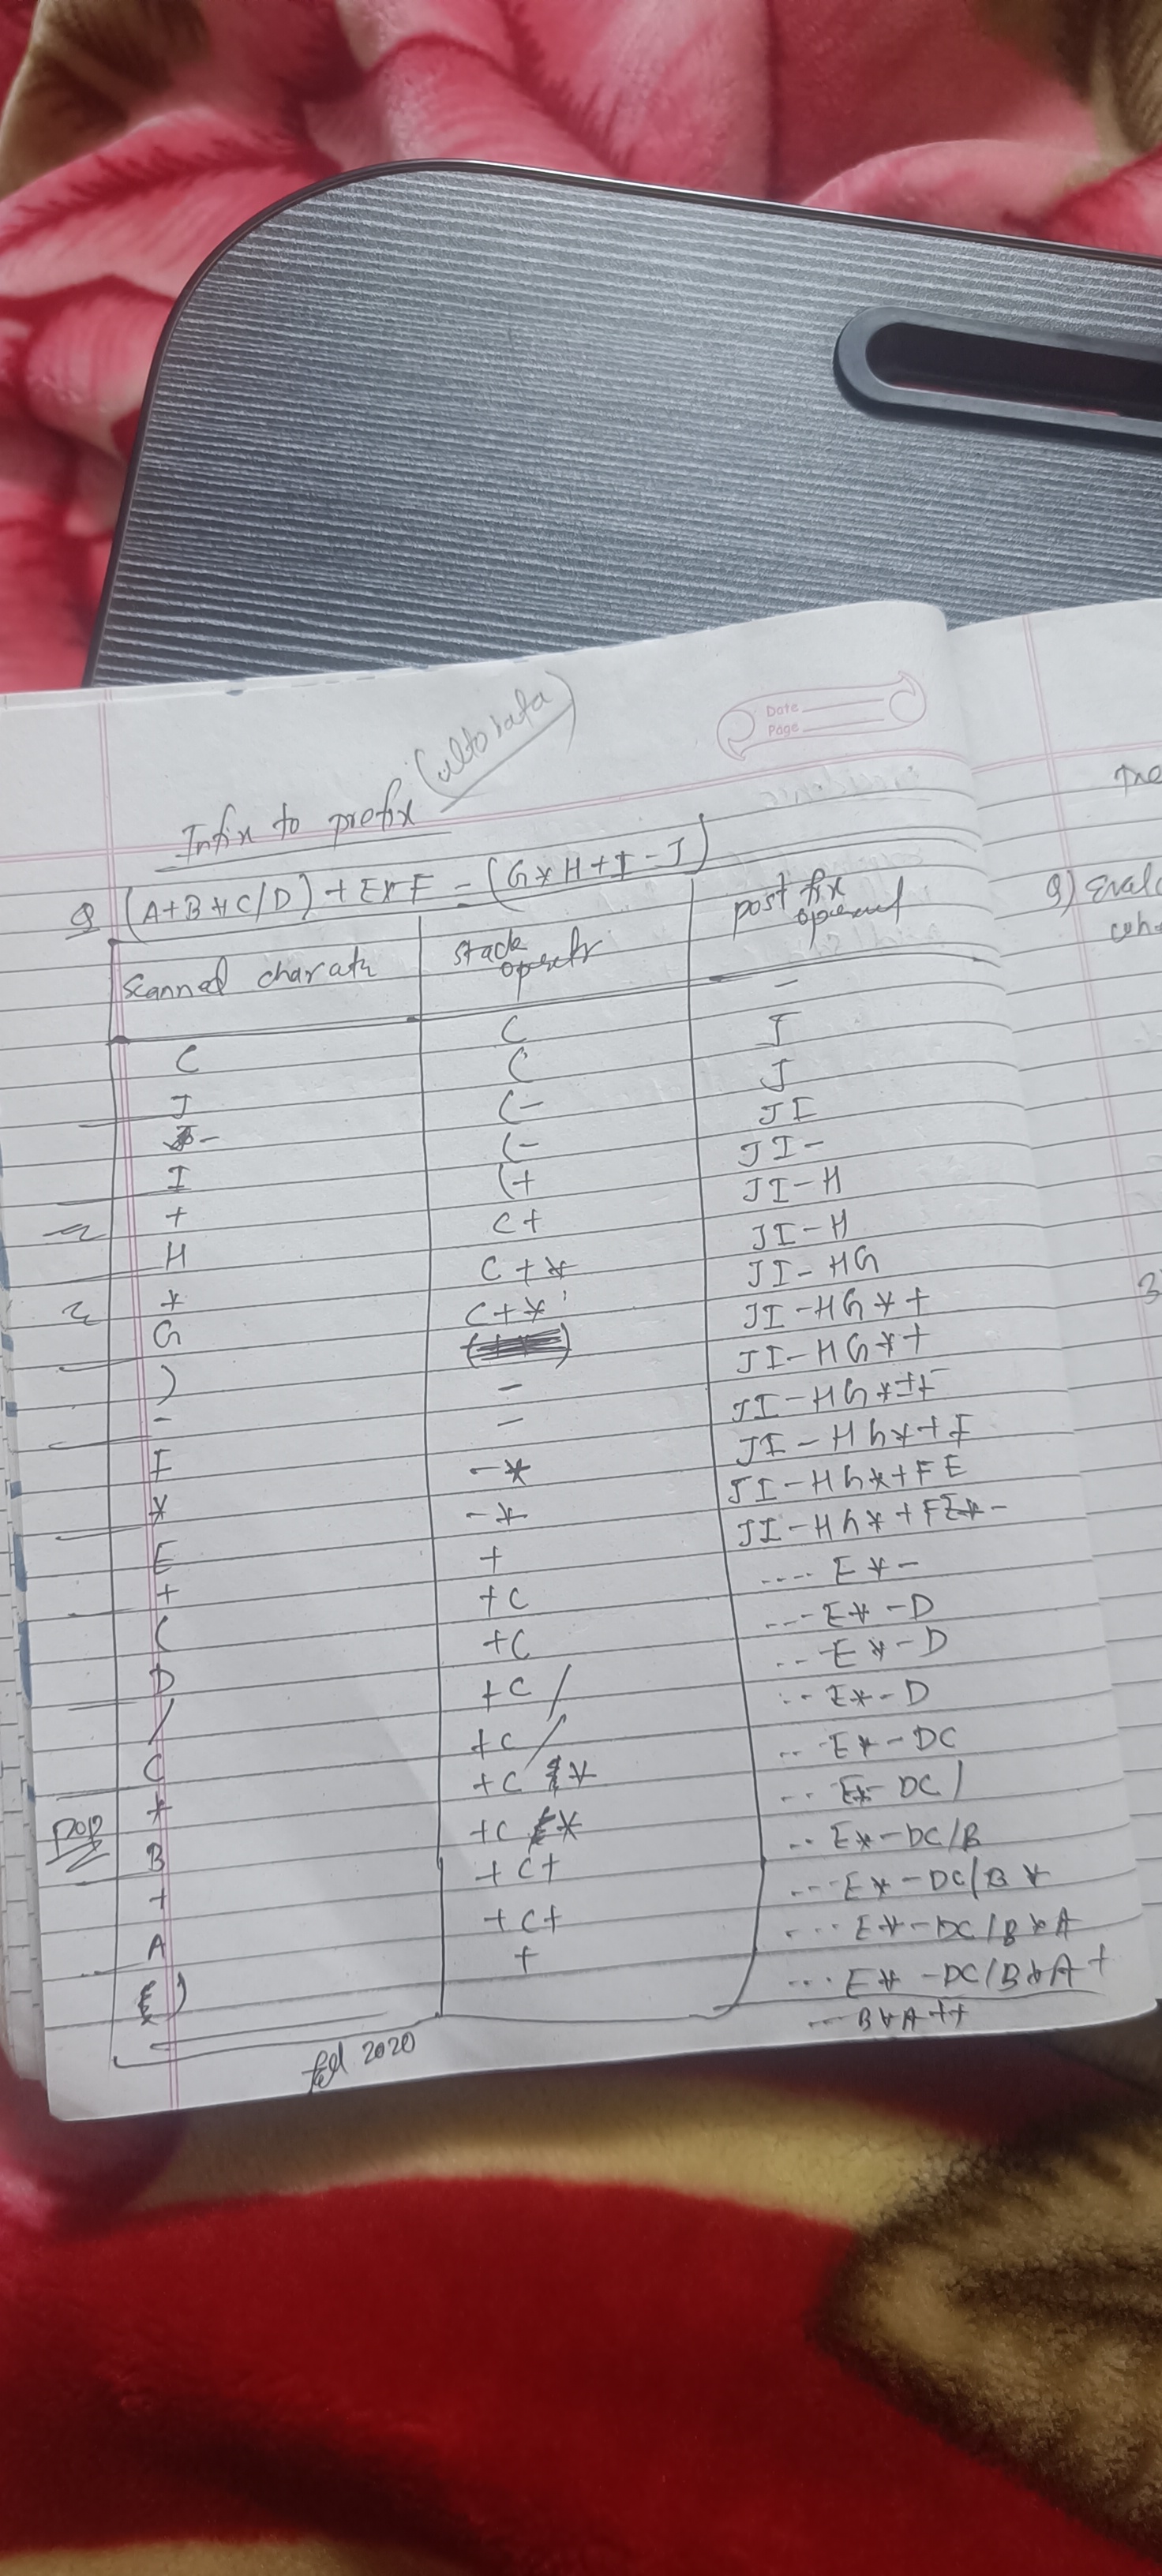 Date
Page
Infix to prefix
Q (A+B*C/D)+E*F-(G*H+I-J)
scanned charatr | stack operatr | post fix operend
( | ( | -
J | ( | J
- | (- | J
I | (- | JI
+ | (+ | JI-
H | (+ | JI-H
* | (+* | JI-H
G | (+* | JI-HG
) | | JI-HG*+
- | - | JI-HG*+
F | - | JI-HG*+F
* | -* | JI-HG*+F
E | -* | JI-HG*+FE
+ | + | JI-HG*+FE*-
( | +( | .... E*-
D | +( | ...E*-D
/ | +(/ | ...E*-D
C | +(/ | ..E*-DC
* | +(* | ...E*-DC/
pop
B | +(* | ..E*-DC/B
+ | +(+ | ...E*-DC/B*
A | +(+ | ...E*-DC/B*A
) | + | ...E*-DC/B*A+
...B*A++
2020
Q) Eval
3